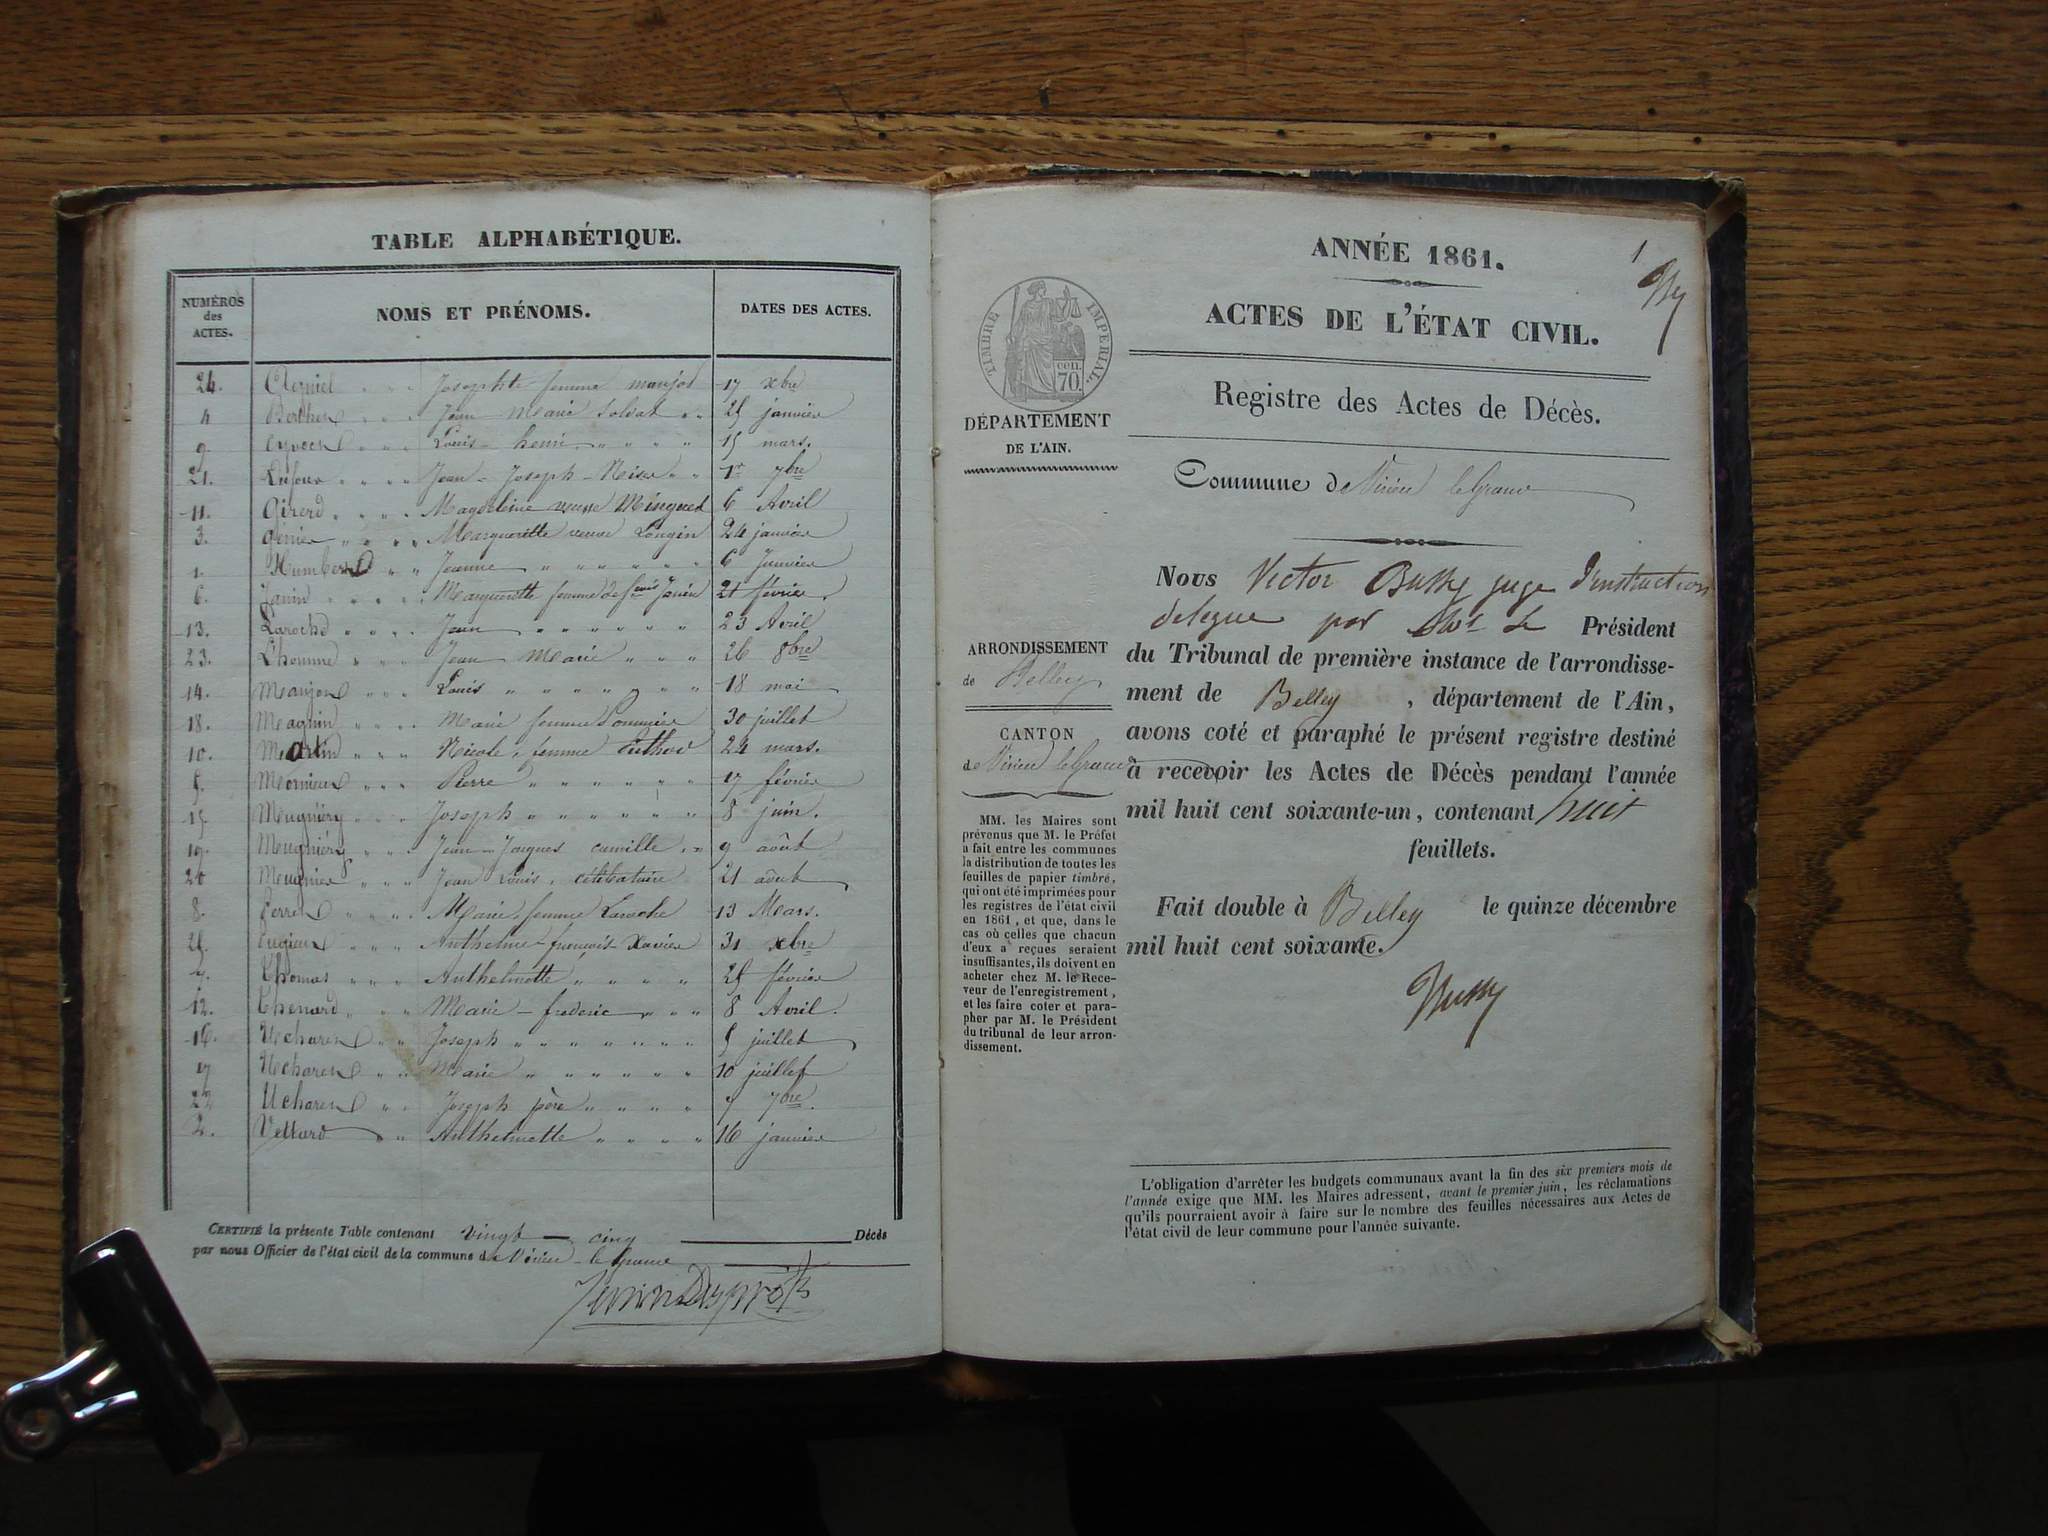 TABLE ALPHABÉTIQUE.
NUMÉROS
des
ACTES.
NOMS ET PRÉNOMS.
DATES DES ACTES.
24. Josephte femme manjot 17 xbre
4 Jean Marie Soldat 25 janvier
9. Louis henri 15 mars.
21. Jean Joseph 1er 7bre
11. Girerd Magdeleine veuve Minguet 6 Avril
3. Margueritte veuve Longin 24 janvier
1. Humbert Jeanne 6 Janvier
6. Janin Margueritte femme de Janin 21 février
13. Laroche Jean 23 Avril
23. L'homme Jean Marie 26 8bre
14. Manjot Louis 18 mai
18. Magnin Marie femme Pommier 30 juillet
10. Martin Nicole, femme 24 mars.
5. Pierre 17 février
15 Meugniéry Joseph 8 juin.
19. Meugniéry Jean-Jacques camille 9 août
20 Meugnier Jean Louis, célibataire 21 août
8. Perret Marie, femme Laroche 13 Mars.
25. Anthelme françois Xavier 31 xbre
7. Thomas Anthelmette 25 février
12. Thenard Marie frederic 8 Avril.
16. Ucharet Joseph 5 juillet
17 Ucharet Marie 10 juillet
22 Ucharet Joseph père 7 7bre.
2. Vettard Anthelmette 16 janvier
CERTIFIÉ la présente Table contenant vingt-cinq Décès
par nous Officier de l'état civil de la commune de Virieu-le-Grand
1
ANNÉE 1861.
ACTES DE L'ÉTAT CIVIL.
TIMBRE IMPÉRIAL.
cen.
70.
DÉPARTEMENT
DE L'AIN.
Registre des Actes de Décès.
Commune de Virieu le Grand
Nous Victor Bussy juge d'instruction
delegue par Mr le Président
du Tribunal de première instance de l'arrondisse-
ment de Belley, département de l'Ain,
avons coté et paraphé le présent registre destiné
à recevoir les Actes de Décès pendant l'année
mil huit cent soixante-un, contenant huit
feuillets.
Fait double à Belley le quinze décembre
mil huit cent soixante.
Bussy
ARRONDISSEMENT
de Belley
CANTON
de Virieu le Grand
MM. les Maires sont
prévenus que M. le Préfet
a fait entre les communes
la distribution de toutes les
feuilles de papier timbré,
qui ont été imprimées pour
les registres de l'état civil
en 1861, et que, dans le
cas où celles que chacun
d'eux a reçues seraient
insuffisantes, ils doivent en
acheter chez M. le Rece-
veur de l'enregistrement,
et les faire coter et para-
pher par M. le Président
du tribunal de leur arron-
dissement.
L'obligation d'arrêter les budgets communaux avant la fin des six premiers mois de
l'année exige que MM. les Maires adressent, avant le premier juin, les réclamations
qu'ils pourraient avoir à faire sur le nombre des feuilles nécessaires aux Actes de
l'état civil de leur commune pour l'année suivante.